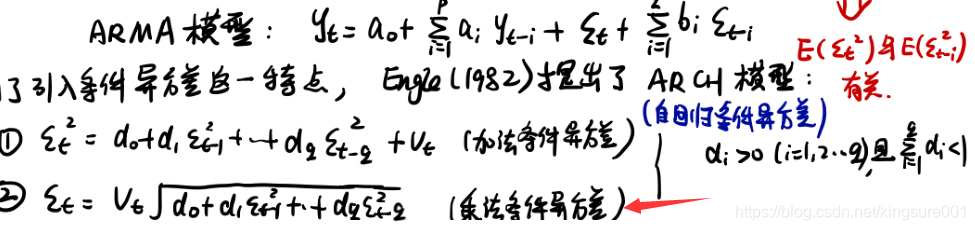 ARMA模型: y_t = a_0 + Σ_{i=1}^{p} a_i y_{t-i} + ε_t + Σ_{i=1} b_i ε_{t-i}
E(ε_t²)与E(ε_{t-i}²)
有关.
了引入条件异方差这一特点, Engle(1982)提出了 ARCH模型:
(自回归条件异方差)
① ε_t² = α_0+α_1 ε_{t-1}²+…+α_q ε_{t-q}² + v_t (加法条件异方差)
α_i>0 (i=1,2…q)且 Σ_{i=1}^{q} α_i<1
② ε_t = v_t √(α_0+α_1 ε_{t-1}²+…+α_q ε_{t-q}²) (乘法条件异方差)
https://blog.csdn.net/kingsure001